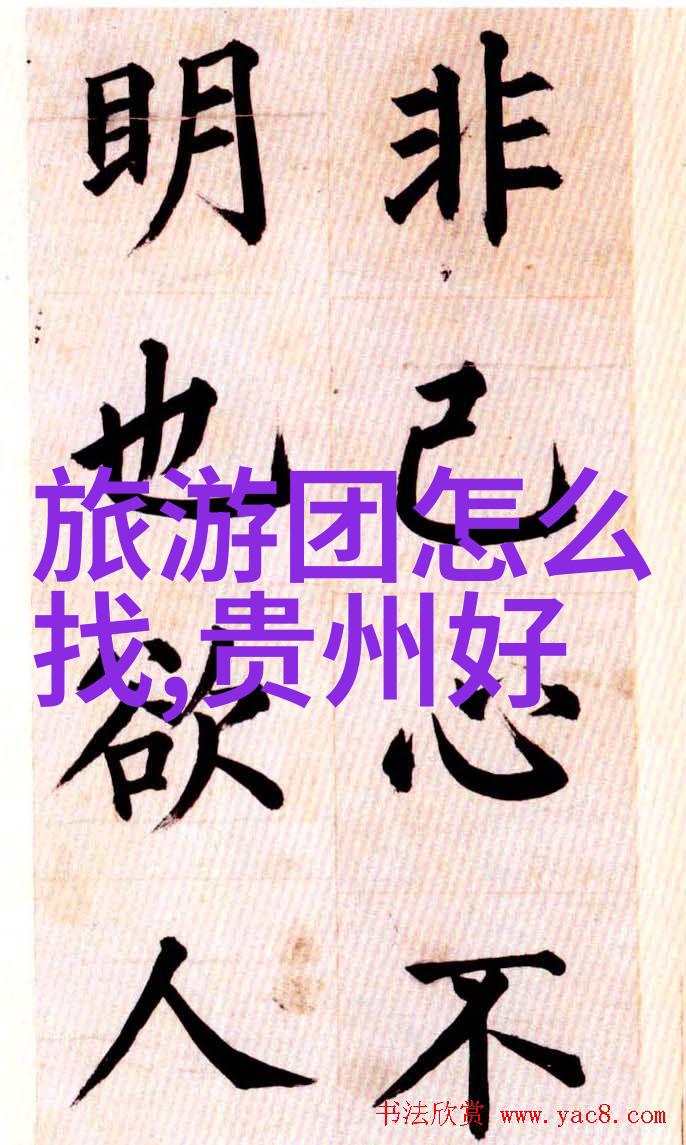 非己心不
明也欲人
旅游团怎么
找,贵州好
书法欣赏 www.yac8.com